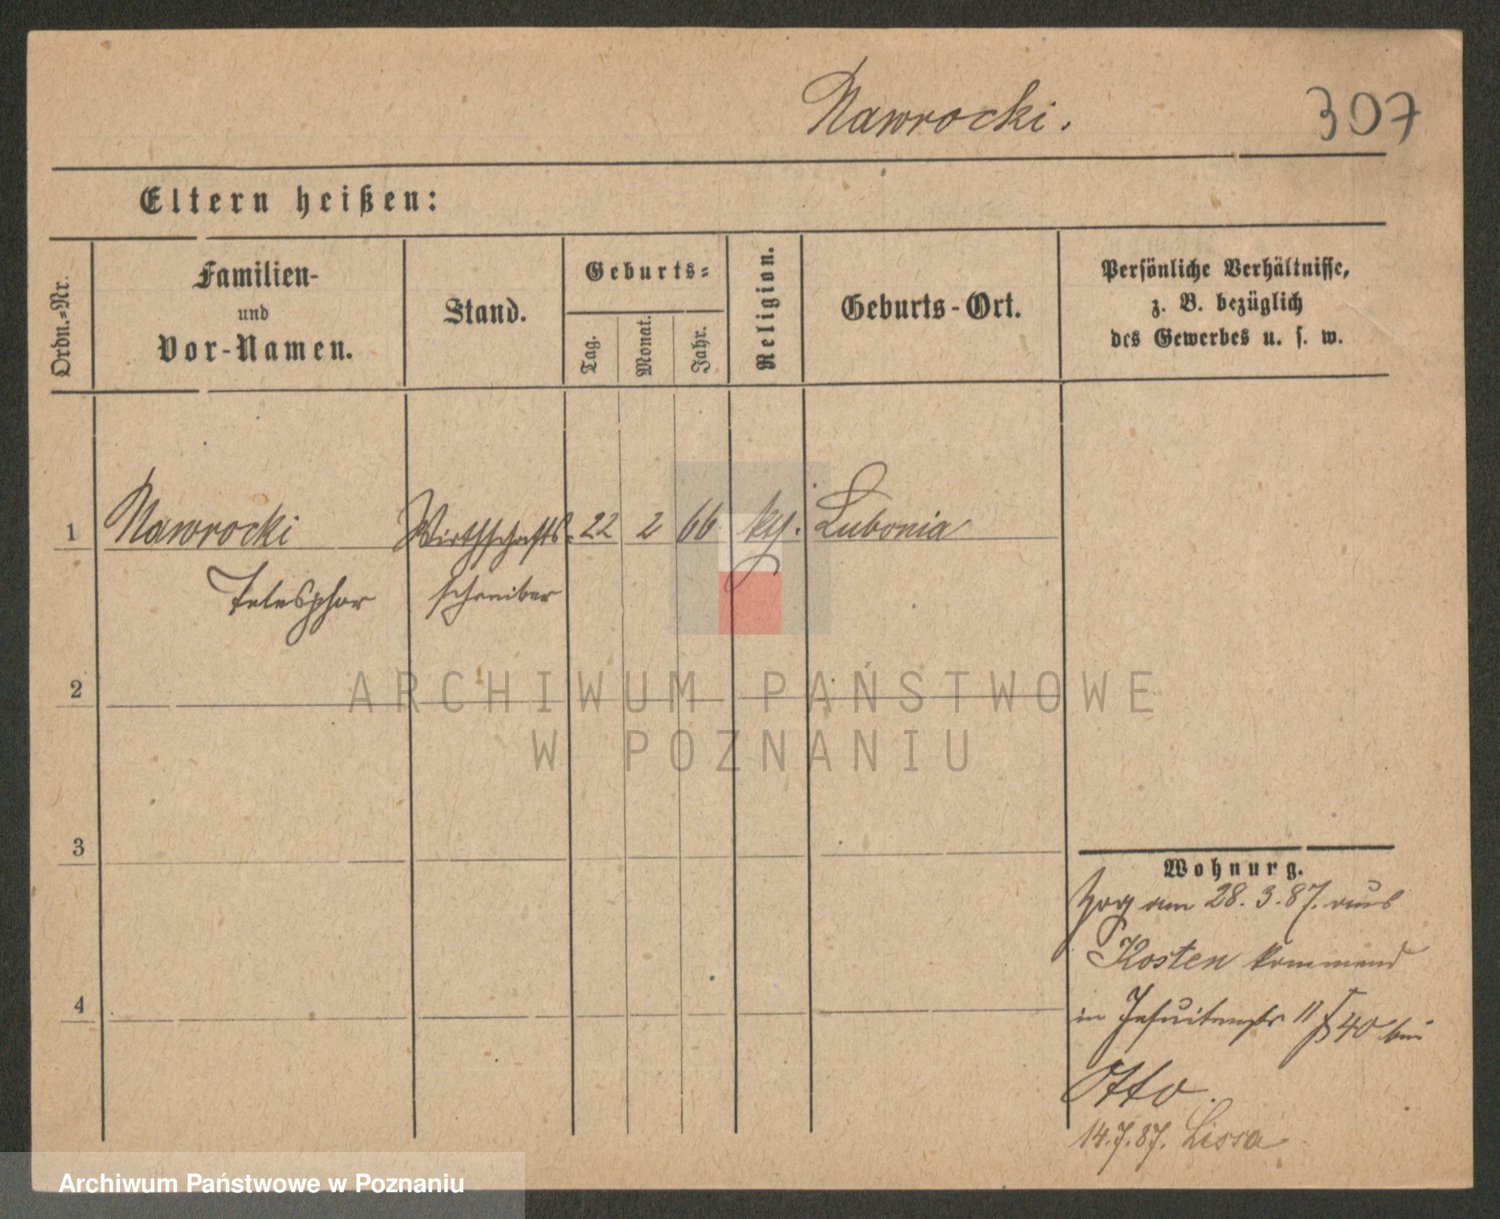 Nawrocki.
307
Eltern heißen:
Ordn.=Nr.
Familien-
und
Vor-Namen.
Stand.
Geburts=
Tag.
Monat.
Jahr.
Religion.
Geburts-Ort.
Persönliche Verhältnisse,
z. B. bezüglich
des Gewerbes u. s. w.
1 Nawrocki Wirthschafts- 22 2 66 Lubonia
Telesphor schreiber
2
3
4
Wohnung.
Zog am 28.3.87. aus
Kosten kommend
in Jesuitenstr 11 40 bei
Otto.
14.7.87. Lissa
ARCHIWUM PAŃSTWOWE
W POZNANIU
Archiwum Państwowe w Poznaniu